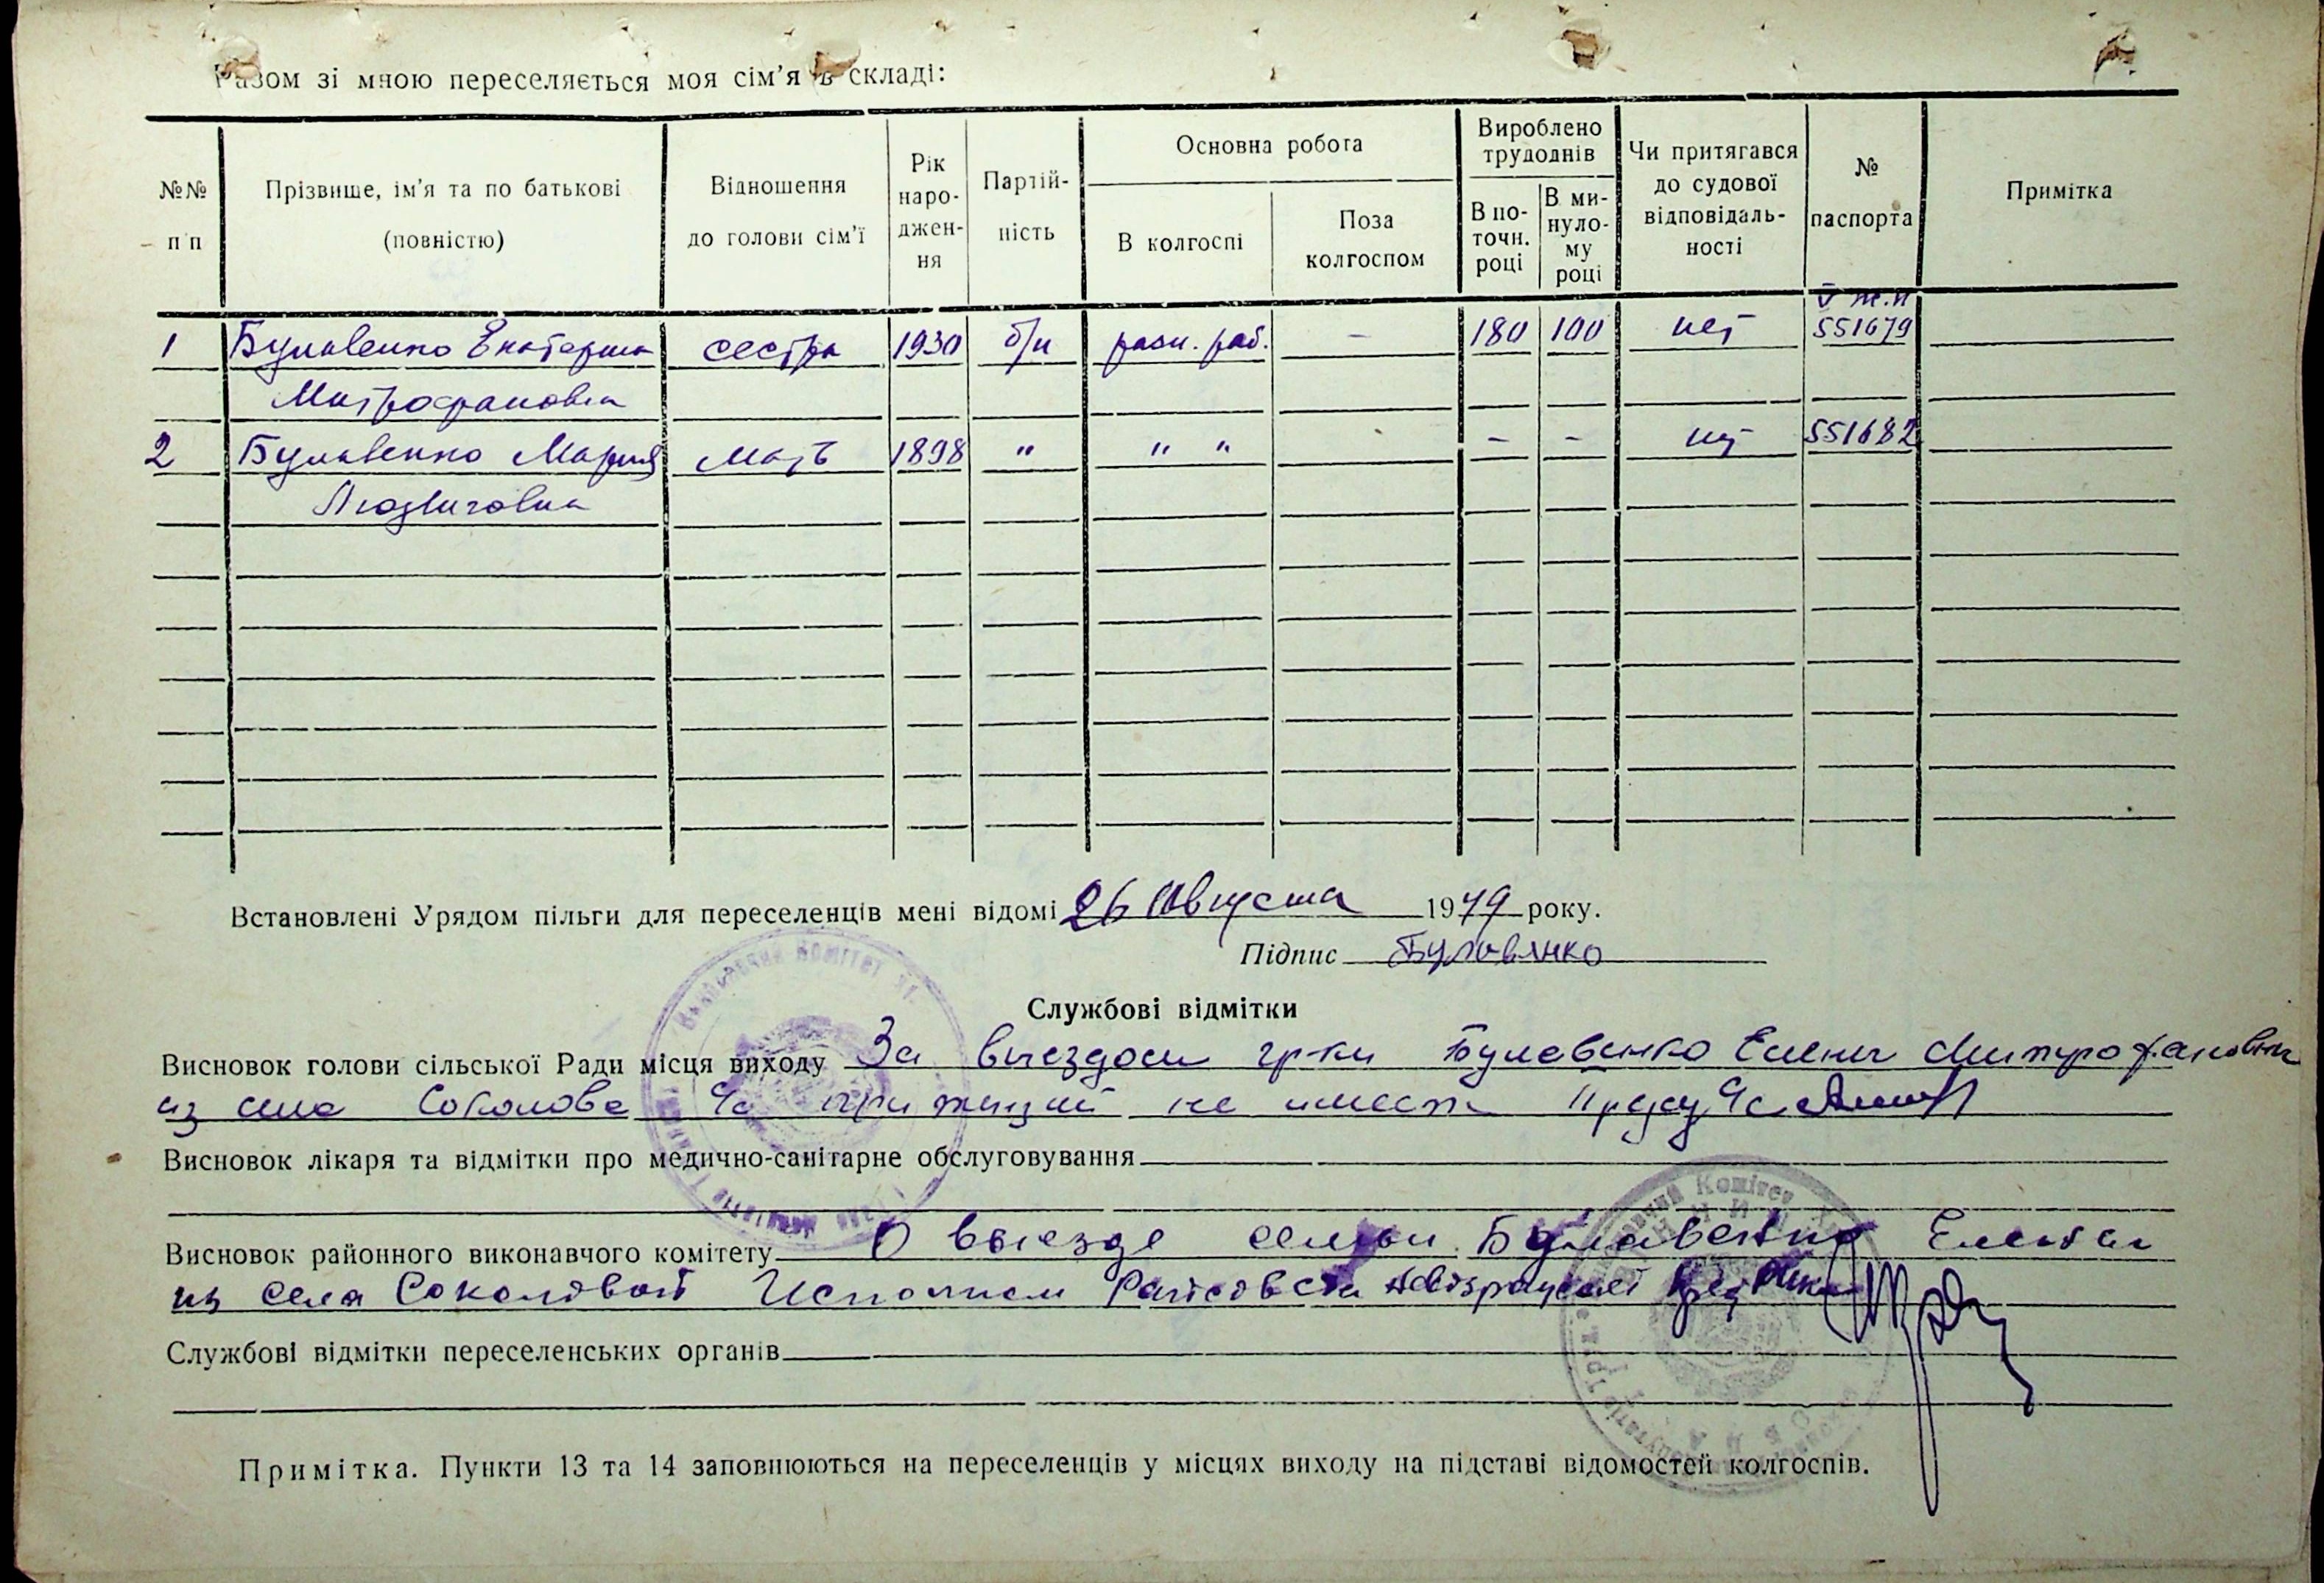 Разом зі мною переселяється моя сім'я в складі:
№№ п п
Прізвище, ім'я та по батькові (повністю)
Відношення до голови сім'ї
Рік народжен-ня
Партій-ність
Основна робота
В колгоспі
Поза колгоспом
Вироблено трудоднів
В по-точн. році
В ми-нуло-му році
Чи притягався до судової відповідаль-ності
№ паспорта
Примітка
1 Булавенко Екатерина сестра 1930 б/п разн. раб. – 180 100 нет 551679
Митрофановна
2 Булавенко Мария мать 1898 " " " – – нет 551682
Людвиговна
Встановлені Урядом пільги для переселенців мені відомі 26 Августа 1949 року.
Підпис Булавянко
Службові відмітки
Висновок голови сільської Ради місця виходу За выездом гр-ки Булавенко Елены Митрофановны
из села Соколова не имеет
Висновок лікаря та відмітки про медично-санітарне обслуговування
Висновок районного виконавчого комітету О выезде семьи Булавенко Елены
из села Соколовой Исполком Райсовета
Службові відмітки переселенських органів
Примітка. Пункти 13 та 14 заповнюються на переселенців у місцях виходу на підставі відомостей колгоспів.